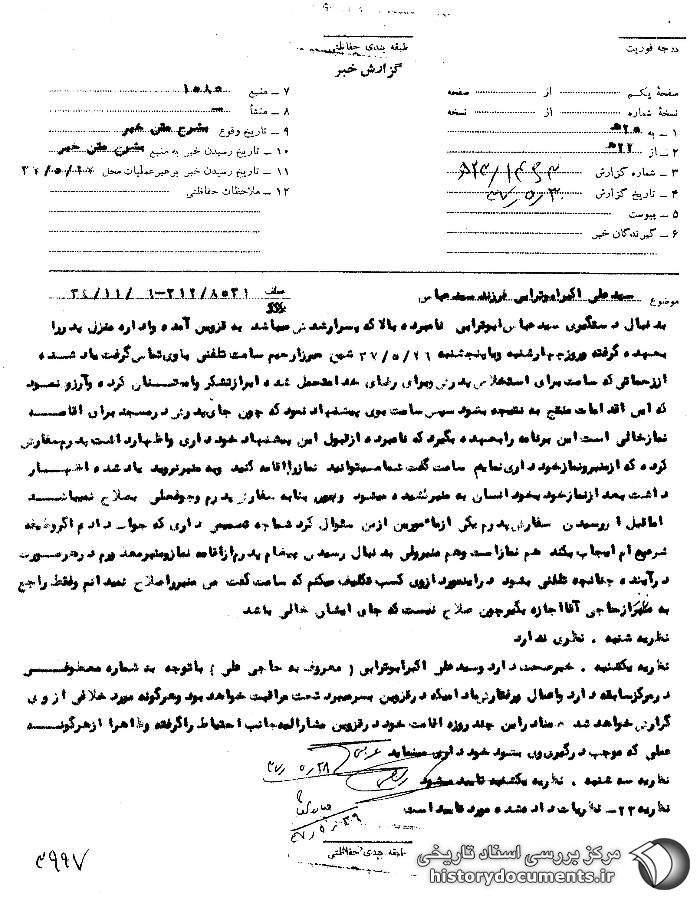 طبقه بندی حفاظتی
درجه فوریت
گزارش خبر
صفحهٔ یکم از صفحه
نسخهٔ شماره از نسخه
۱ – به ۲۰ ه‍
۲ – از ۲۲ ه‍
۳ – شماره گزارش
۴ – تاریخ گزارش
۵ – پیوست
۶ – گیرندگان خبر
۷ – منبع ۱۰۸۰
۸ – منشأ
۹ – تاریخ وقوع بشرح متن خبر
۱۰ – تاریخ رسیدن خبر به منبع بشرح متن خبر
۱۱ – تاریخ رسیدن خبر برهبر عملیات محل
۱۲ – ملاحظات حفاظتی
موضوع سیدعلی اکبر ابوترابی فرزند سیدعباس
بدنبال دستگیری سیدعباس ابوترابی نامبرده بالا که پسر ارشدش میباشد به قزوین آمده و اداره منزل پدر را
بعهده گرفته و روز چهارشنبه و یا پنجشنبه شیخ میرزا رحیم سامت تلفنی با وی تماس گرفت یاد شده
از زحماتی که سامت برای استخلاص پدرش و برای رضای خدا متحمل شده ابراز تشکر و امتنان کرده و آرزو نمود
که این اقدامات منتج به نتیجه بشود سپس سامت بوی پیشنهاد نمود که چون جای پدرش در مسجد برای اقامه
نماز خالی است این برنامه را بعهده بگیرد که نامبرده از قبول این پیشنهاد خودداری و اظهار داشت پدرم سفارش
کرده که از منبر و نماز خودداری نمایم سامت گفت شما میتوانید نماز را اقامه کنید و به منبر نروید یاد شده اظهار
داشت بعد از نماز خود بخود انسان به منبر کشیده میشود و بنا به سفارش پدرم وجود بصلاح نمیباشد
اما قبل از رسیدن سفارش پدرم یکی از مأمورین از من سئوال کرد شما چه تصمیمی داری که جواب دادم اگر وظیفه
شرعی ام ایجاب بکند هم نماز است و هم منبر ولی بدنبال رسیدن پیغام پدرم از اقامه نماز و منبر معذورم در هر صورت
در آینده چنانچه تلفنی بشود در اینمورد از وی کسب تکلیف میکنم که سامت گفت من منبر را صلاح نمیدانم و فقط راجع
به از حاجی آقا اجازه بگیر چون صلاح نیست که جای ایشان خالی باشد
نظریه شنبه . نظری ندارد
نظریه یکشنبه . خبر صحت دارد و سیدعلی اکبر ابوترابی ( معروف به حاجی علی ) با توجه به شماره معطوفی
در مرکز سابقه دارد و اعمال و رفتارش مادامیکه در قزوین بسر میبرد تحت مراقبت خواهد بود و هرگونه مورد خلافی از وی
گزارش خواهد شد ضمنا در این چند روزه اقامت خود در قزوین مشارالیه جانب احتیاط را گرفته و ظاهرا از هرگونه
عملی که موجب درگیری وی بشود خودداری مینماید
نظریه سه شنبه . نظریه یکشنبه تایید میشود
نظریه ۲۲ه‍ – نظریات داده شده مورد تایید است
طبقه بندی حفاظتی
۳۹۹۷
مرکز بررسی اسناد تاریخی
historydocuments.ir